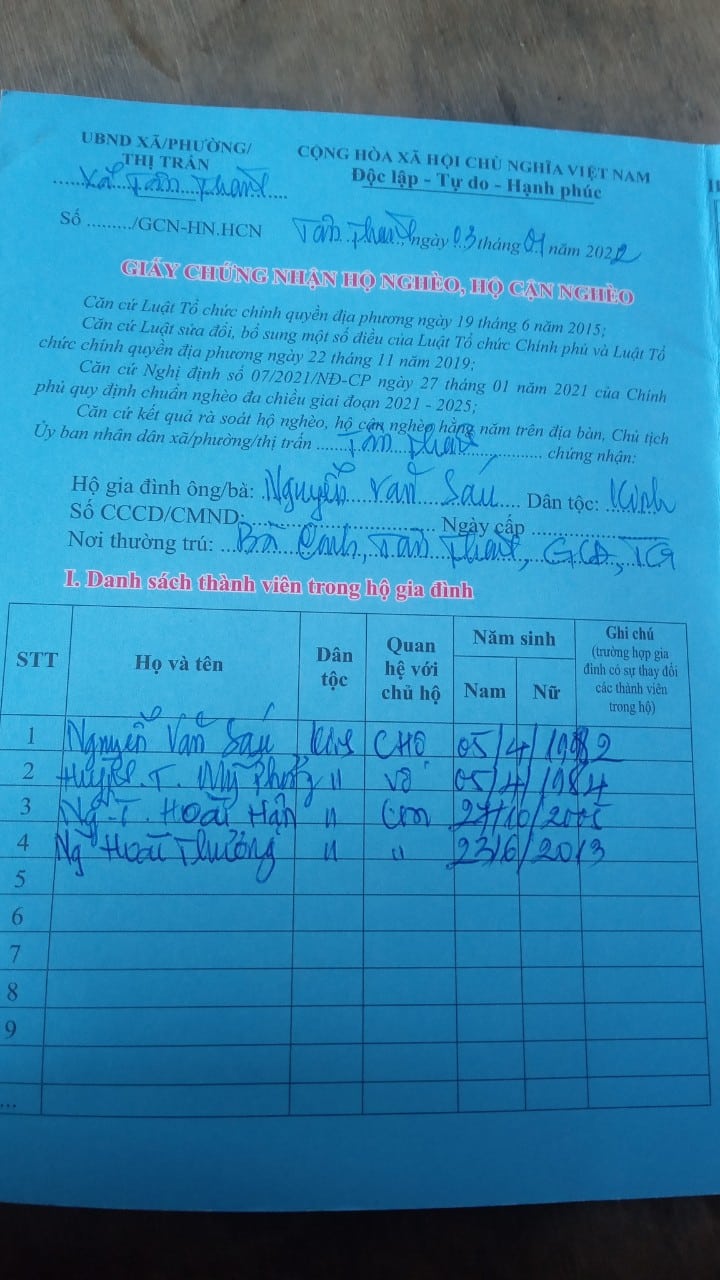 UBND XÃ/PHƯỜNG/
THỊ TRẤN
Xã Tân Thanh
CỘNG HÒA XÃ HỘI CHỦ NGHĨA VIỆT NAM
Độc lập - Tự do - Hạnh phúc
Số ........./GCN-HN.HCN
Tân Thanh, ngày 03 tháng 01 năm 2022
GIẤY CHỨNG NHẬN HỘ NGHÈO, HỘ CẬN NGHÈO
Căn cứ Luật Tổ chức chính quyền địa phương ngày 19 tháng 6 năm 2015;
Căn cứ Luật sửa đổi, bổ sung một số điều của Luật Tổ chức Chính phủ và Luật Tổ
chức chính quyền địa phương ngày 22 tháng 11 năm 2019;
Căn cứ Nghị định số 07/2021/NĐ-CP ngày 27 tháng 01 năm 2021 của Chính
phủ quy định chuẩn nghèo đa chiều giai đoạn 2021 - 2025;
Căn cứ kết quả rà soát hộ nghèo, hộ cận nghèo hằng năm trên địa bàn, Chủ tịch
Ủy ban nhân dân xã/phường/thị trấn Tân Thanh chứng nhận:
Hộ gia đình ông/bà: Nguyễn Văn Sáu Dân tộc: Kinh
Số CCCD/CMND: Ngày cấp
Nơi thường trú: Bà Tân Thanh, GCĐ, TG
I. Danh sách thành viên trong hộ gia đình
STT Họ và tên Dân tộc Quan hệ với chủ hộ Năm sinh Nam Nữ Ghi chú (trường hợp gia đình có sự thay đổi các thành viên trong hộ)
1 Nguyễn Văn Sáu CHộ 05/4/1982
2 Huỳnh T. Mỹ " Vợ 05/4/1984
3 Ng T. Hoài Hận " Con
4 Ng Hoài Thương " " 23/6/2013
5
6
7
8
9
...